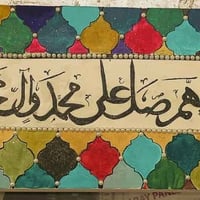 هم صل علی محمد وآل